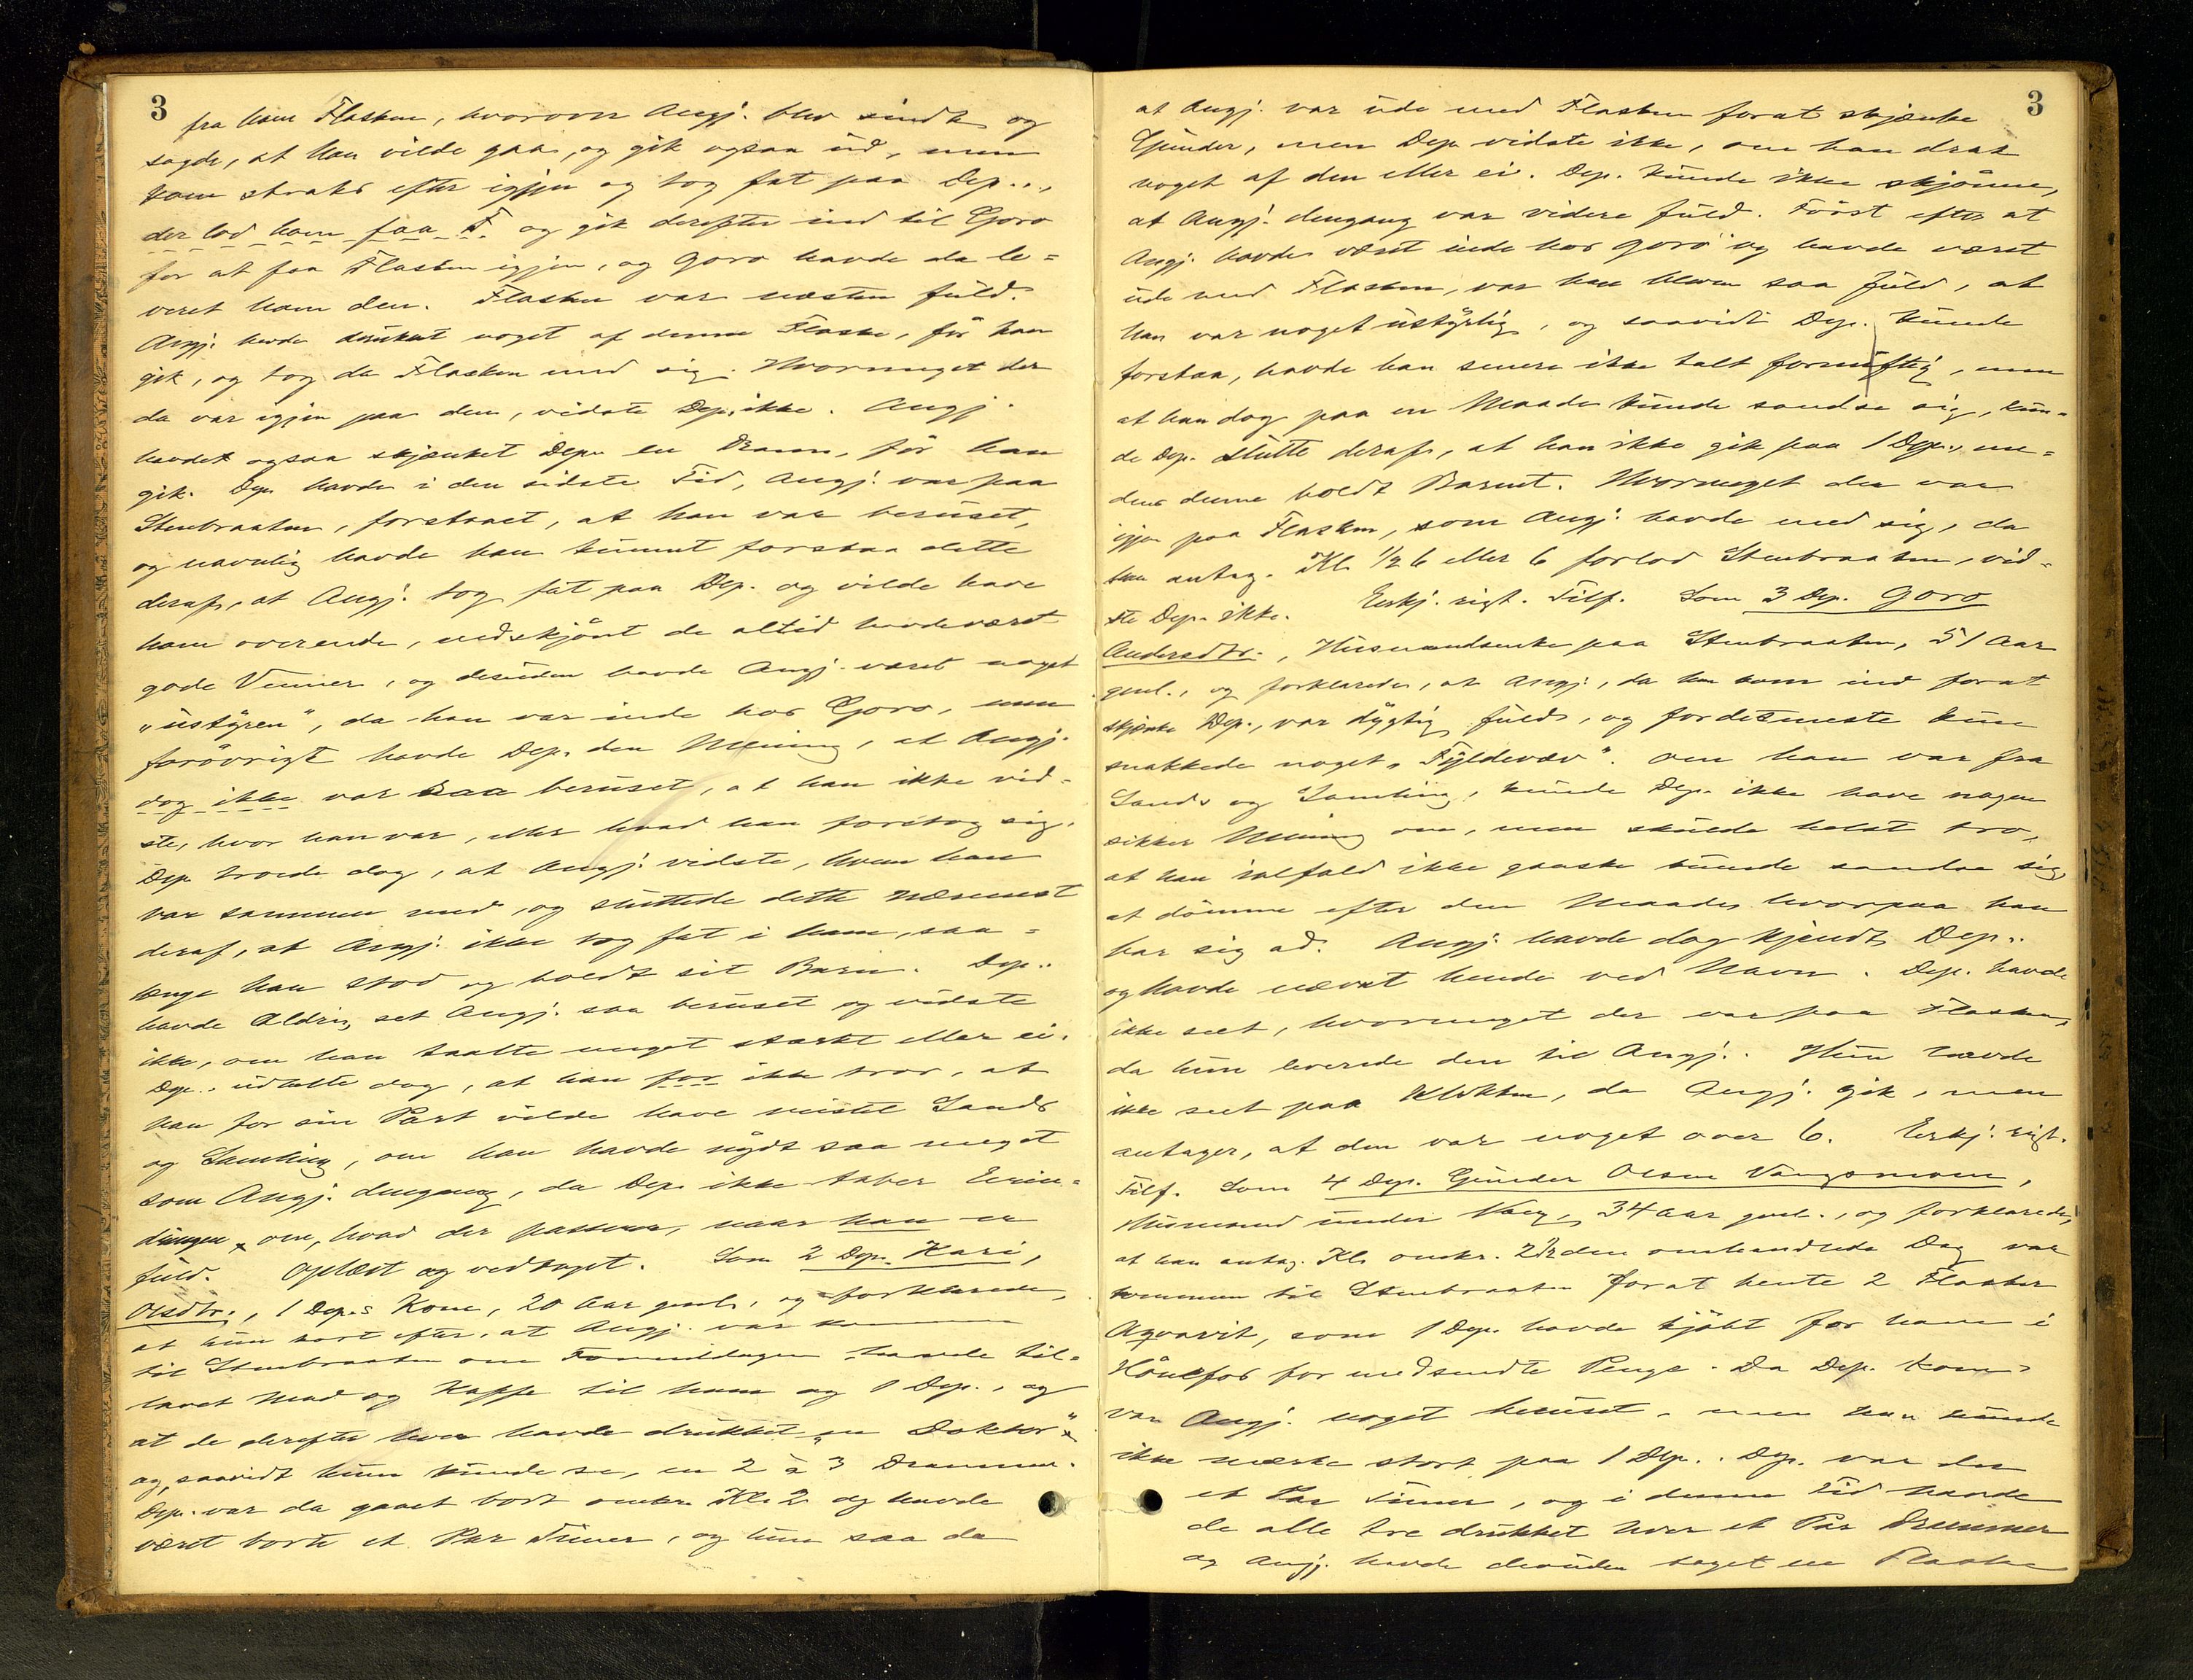 3
fra ham Flasken, hvorover Angj. blev sindt og
sagde, at han vilde gaa, og gik ogsaa ud, men
kom straks efter igjen og tog fat paa Dep.,
der lod ham faa F. og gik derefter ind til Goro
for at faa Flasken igjen, og Goro havde da le=
veret ham den. Flasken var næsten fuld.
Angj. havde drukket noget af denne Flaske, før han
gik, og tog da Flasken med sig. Hvormeget der
da var igjen paa den, vidste Dep. ikke. Angj.
havde ogsaa skjænket Dep. en Dram, før han
gik. Dep. havde i den sidste Tid, Angj. var paa
Stenbraaten, forstaaet, at han var beruset,
og navnlig havde han kunnet forstaa dette
deraf, at Angj. tog fat paa Dep. og vilde have
ham overende, uedskjønt de altid havde været
gode Venner, og desuden havde Angj. været noget
"ustyren", da han var inde hos Goro, men
forøvrigt havde Dep. den Mening, at Angj.
dog ikke var saa beruset, at han ikke vid=
ste, hvor han var, eller hvad han foretog sig.
Dep. troede dog, at Angj. vidste, hvem han
var sammen med, og sluttede dette nærmest
deraf, at Angj. ikke tog fat i ham, saa=
længe han stod og holdt sit Barn. Dep.
havde Aldrig set Angj. saa beruset og vidste
ikke, om han taalte meget stærkt eller ei.
Dep. udtalte dog, at han for ikke tror, at
han for sin Part vilde have mistet Sands
og Samling, om han havde nydt saa meget
som Angj. dengang, da Dep. ikke taber Erin=
dringen om, hvad der passerer, naar han er
fuld. Oplæst og vedtaget. Som 2 Dep. Kari
Olsdtr., 1 Dep.s Kone, 20 Aar gml., og forklarede,
at hun kort efter, at Angj. var kommen
til Stenbraaten om Formiddagen havde til=
lavet Mad og Kaffe til ham og 1 Dep., og
at de derefter hver havde drukket "en Doktor"
og, saavidt hun kunde se, en 2 à 3 Drammer.
Dep. var da gaaet bort omkr. Kl. 2 og havde
været borte et Par Timer, og hun saa da
3
at Angj. var ude med Flasken forat skjænke
Gunder, men Dep. vidste ikke, om han drak
noget af den eller ei. Dep. kunde ikke skjønne,
at Angj. dengang var videre fuld. Først efter at
Angj. havde været inde hos Goro og havde været
ude med Flasken, var han bleven saa fuld, at
han var noget ustyrlig, og saavidt Dep. kunde
forstaa, havde han senere ikke talt fornuftig, men
at han dog paa en Maade kunde sandse sig, kun=
de Dep. slutte deraf, at han ikke gik paa 1 Dep., me=
dens denne holdt Barnet. Hvormeget der var
igjen paa Flasken, som Angj. havde med sig, da
han antag. Kl. 1/2 6 eller 6 forlod Stenbraaten, vid=
ste Dep. ikke. Erkj. rigt. Tilf. Som 3 Dep. Goro
Andersdtr., Husmandsenke paa Stenbraaten, 51 Aar
gml., og forklarede, at Angj., da han kom ind forat
skjænke Dep., var dygtig fuld, og fordetmeste kun
snakkede noget "Fyldevæv". Om han var fra
Sands og Samling, kunde Dep. ikke have nogen
sikker Mening om, men skulde helst tro,
at han ialfald ikke ganske kunde sandse sig,
at dømme efter den Maade, hvorpaa han
bar sig ad. Angj. havde dog kjendt Dep.
og havde nævnt hende ved Navn. Dep. havde
ikke seet, hvormeget der var paa Flasken,
da hun leverede den til Angj. Hun havde
ikke seet paa Klokken, da Angj. gik, men
antager, at den var noget over 6. Erkj. rigt.
Tilf. Som 4 Dep. Gunder Olsen Vangsmoen,
Husmand under Vang, 34 Aar gml., og forklarede,
at han antag. Kl. omkr. 2 1/2 den omhandlede Dag var
kommen til Stenbraaten forat hente 2 Flasker
Aqvavit, som 1 Dep. havde kjøbt for ham i
Hønefos for medsendte Penge. Da Dep. kom
var Angj. noget beruset, men han kunde
ikke mærke stort paa 1 Dep. Dep. var der
et Par Timer, og i denne Tid havde
de alle tre drukket hver et Par Drammer
og Angj. havde desuden taget en Flaske